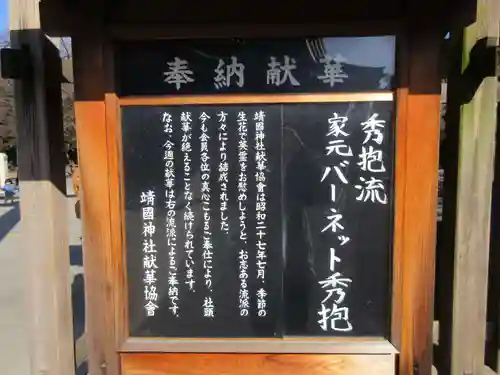 奉納献華
秀抱流
家元バーネット秀抱
靖國神社献華協會は昭和二十七年七月、季節の
生花で英霊をお慰めしようと、お志ある流派の
方々により結成されました。
今も会員各位の真心こもるご奉仕により、社頭
献華が絶えることなく続けられています。
なお、今週の献華は右の流派によるご奉納です。
靖國神社献華協會